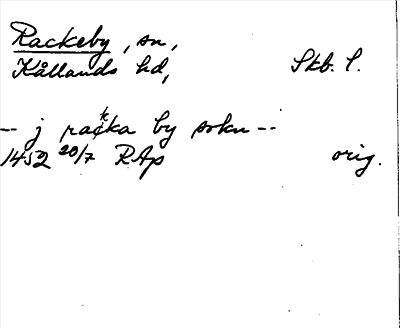 Rackeby, sn,
Kållands hd, Skb. l.
-- j racka by sokn --
1452 20/7 RAp orig.